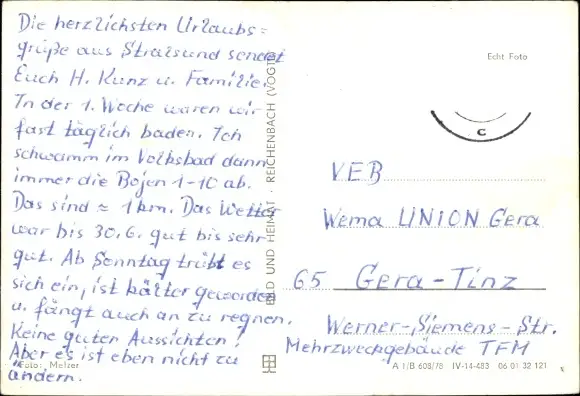 Die herzlichsten Urlaubs=
grüße aus Stralsund sendet
Euch H. Kunz u. Familie.
In der 1. Woche waren wir
fast täglich baden. Ich
schwamm im Volksbad dann
immer die Bojen 1-10 ab.
Das sind ≈ 1km. Das Wetter
war bis 30.6. gut bis sehr
gut. Ab Sonntag trübt es
sich ein, ist kälter geworden
u. fängt auch an zu regnen.
Keine guten Aussichten!
Aber es ist eben nicht zu
ändern.
Foto: Melzer
BILD UND HEIMAT · REICHENBACH (VOGTL)
Echt Foto
C
VEB
Wema UNION Gera
65 Gera-Tinz
Werner-Siemens-Str.
Mehrzweckgebäude TFM
A 1/B 608/78 IV-14-483 06 01 32 121